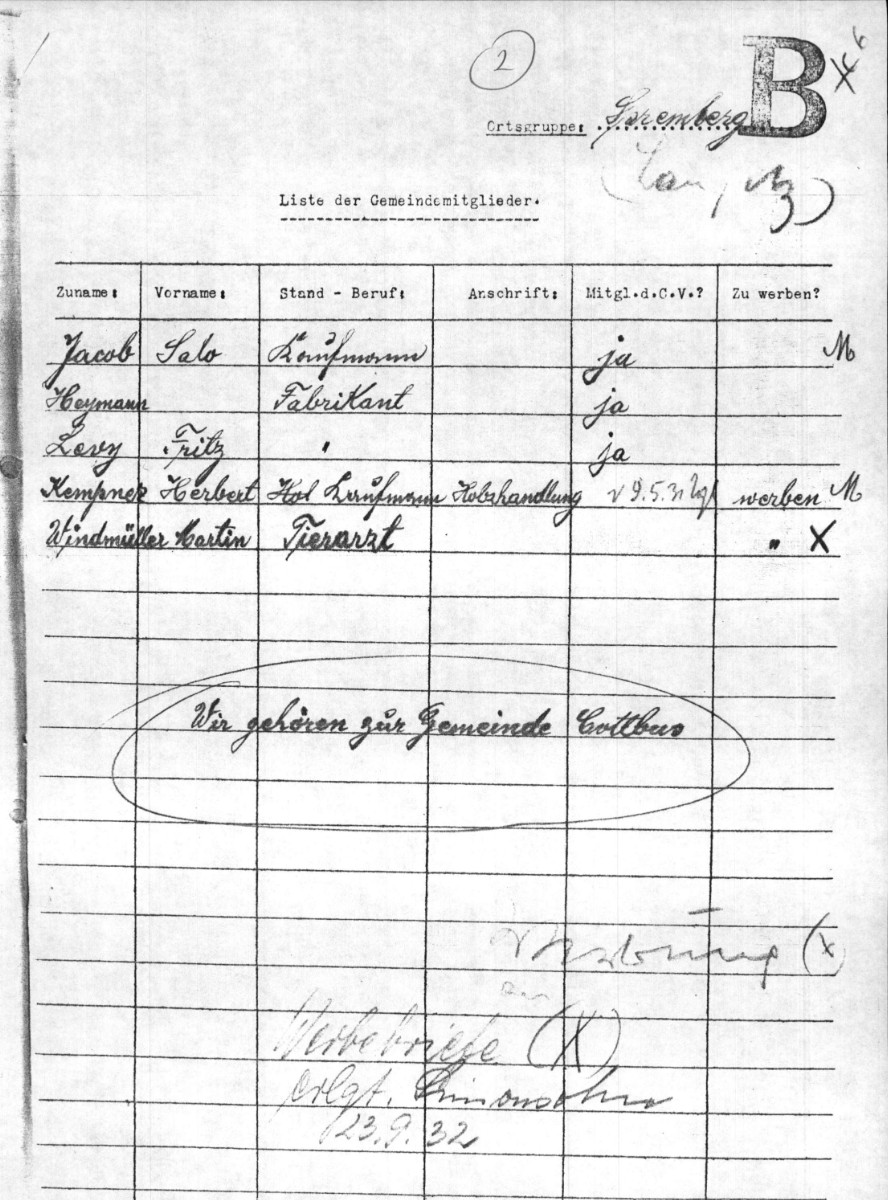 2
B
6
Ortsgruppe: Spremberg
(Lausitz)
Liste der Gemeindemitglieder.
Zuname: Vorname: Stand - Beruf: Anschrift: Mitgl.d.C.V.? Zu werben?
Jacob Salo Kaufmann ja M
Heymann Fabrikant ja
Levy Fritz " ja
Kempner Herbert Hol Kaufmann Holzhandlung 9.5.31 werben M
Windmüller Martin Tierarzt " X
Wir gehören zur Gemeinde Cottbus
Werbung (x)
an
Werbebriefe (X)
erlgt. Simonsohn
23.9.32